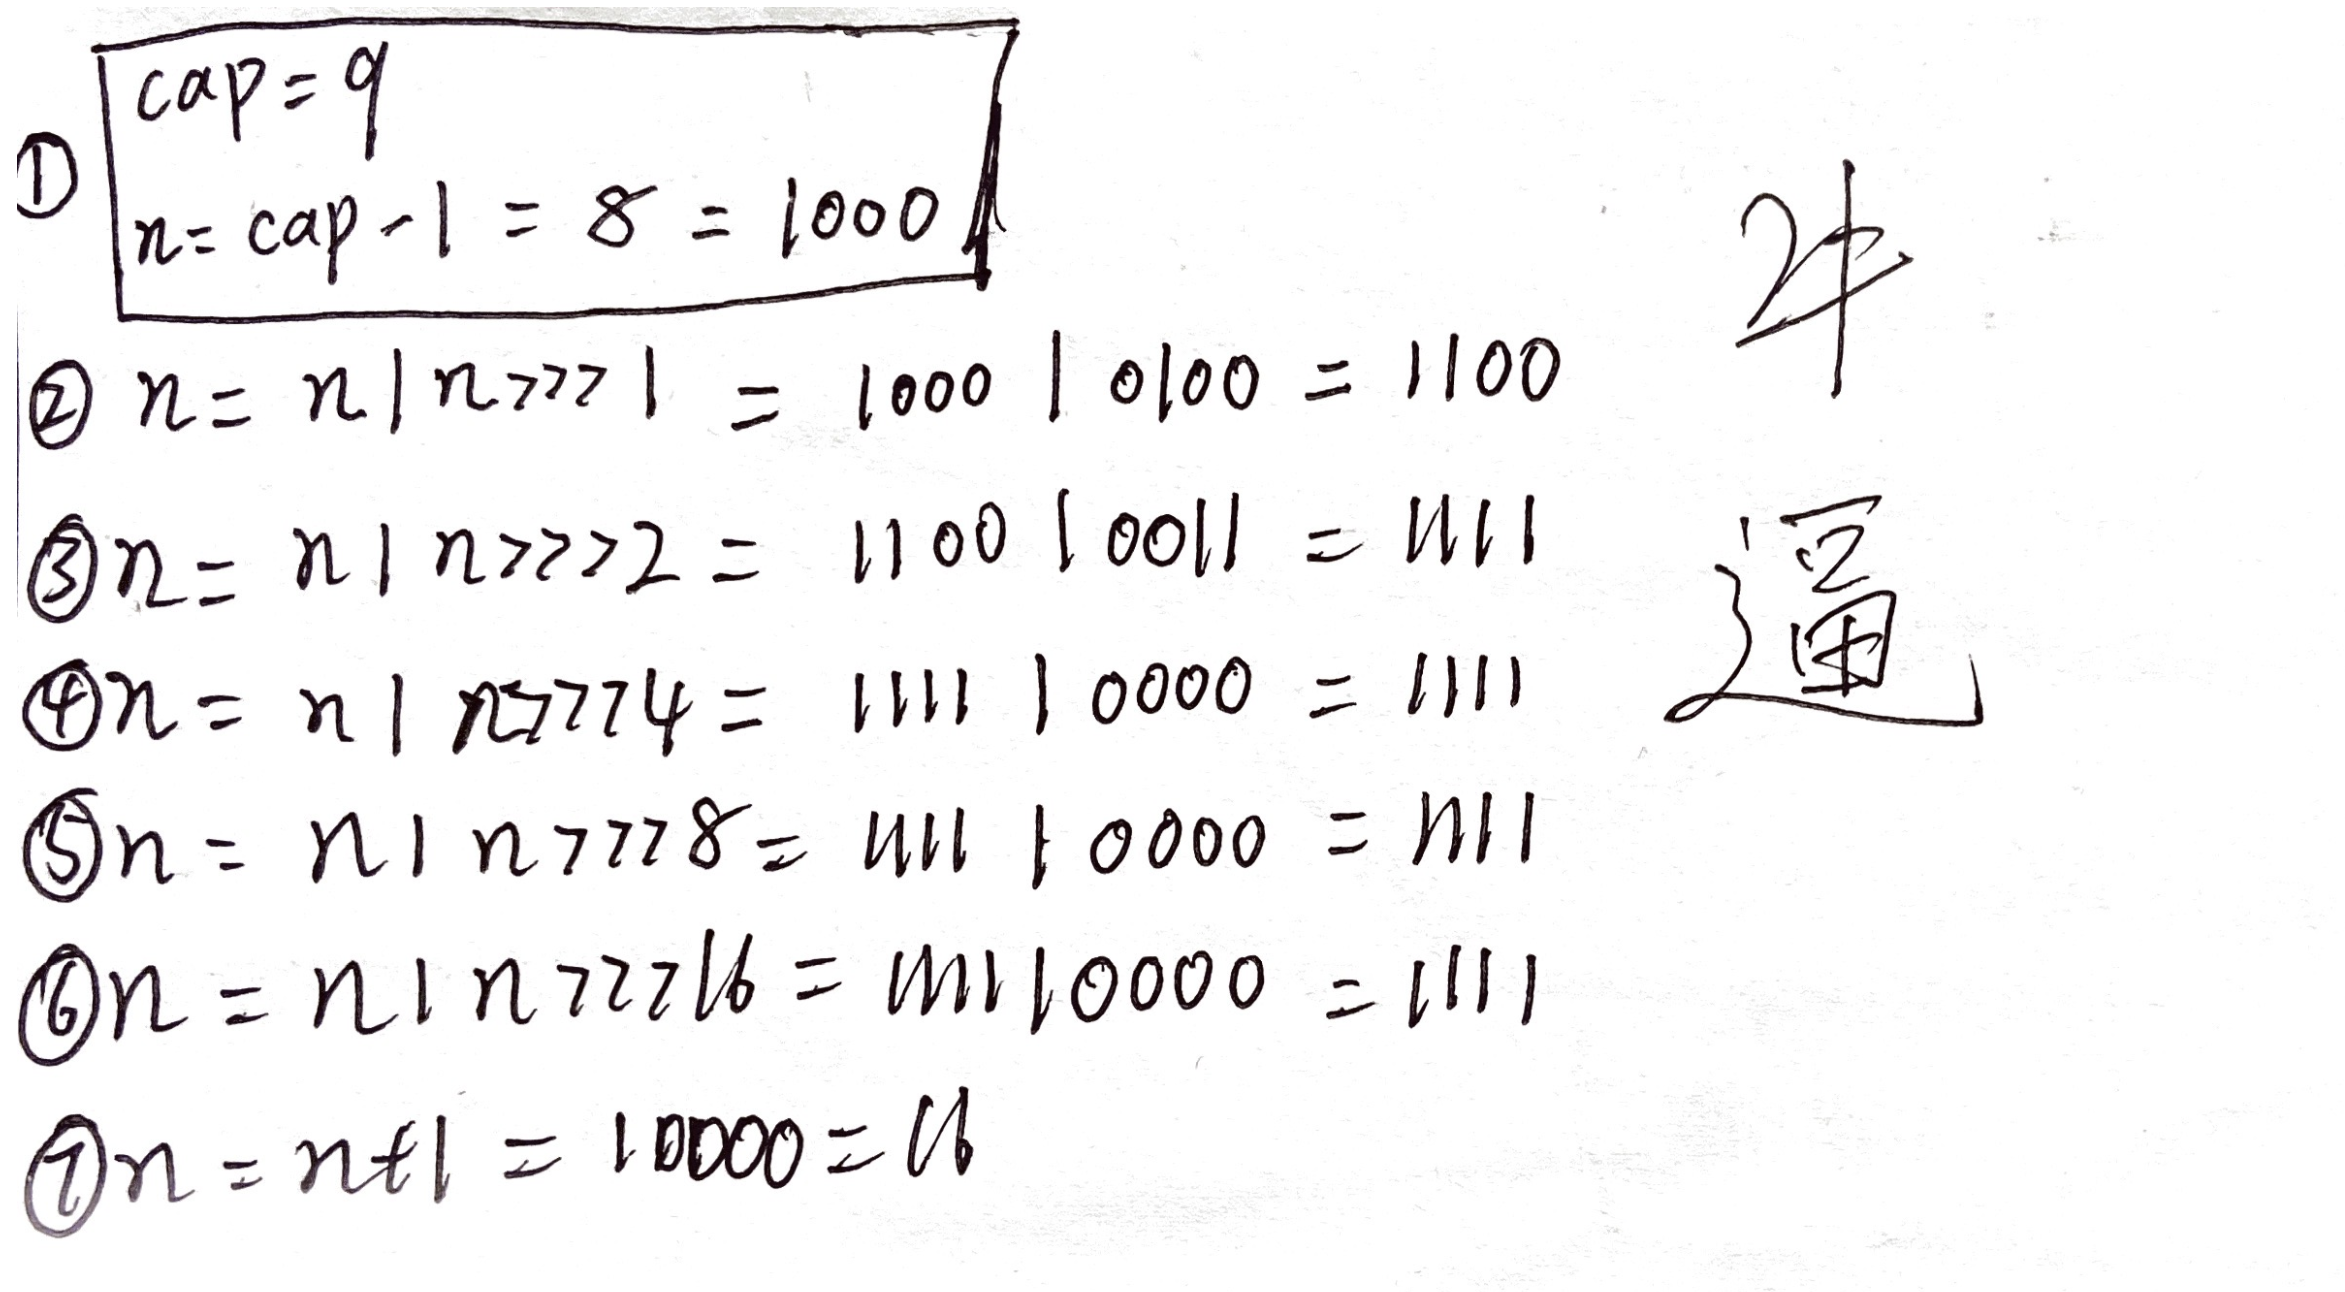 cap=9
① n= cap-1 = 8 = 1000
② n= n|n>>>1 = 1000 | 0100 = 1100
③ n= n|n>>>2 = 1100 | 0011 = 1111
④ n= n|n>>>4= 1111 | 0000 = 1111
⑤ n= n|n>>>8= 1111 | 0000 = 1111
⑥ n= n|n>>>16= 1111|0000 = 1111
⑦ n= n+1 = 10000=16
牛
逼